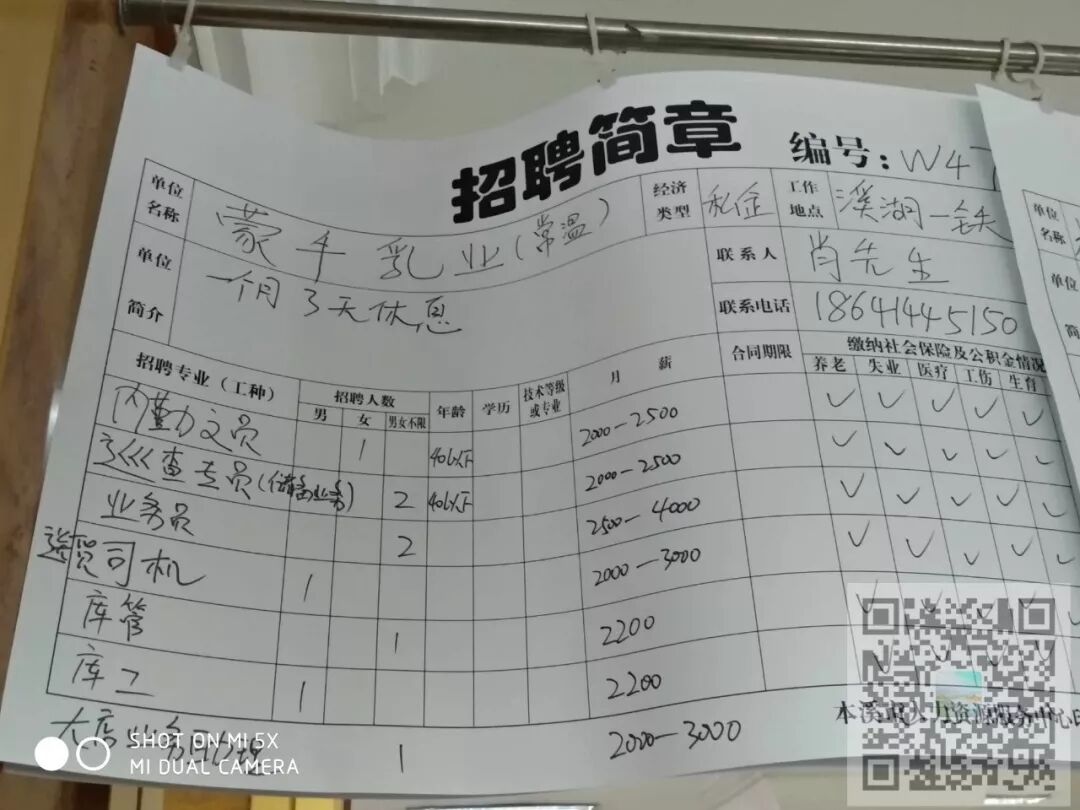 招聘简章
编号：W47
单位名称 蒙牛乳业(常温) 经济类型 私企 工作地点 溪湖一铁
单位简介 一个月3天休息 联系人 肖先生
联系电话 18641445150
招聘专业（工种） 招聘人数 年龄 学历 技术等级或专业 月薪 合同期限 缴纳社会保险及公积金情况
男 女 男女不限 养老 失业 医疗 工伤 生育
内勤文员 1 40以下 2000—2500 ✓ ✓ ✓ ✓ ✓
查专员 2 40以下 2000—2500 ✓ ✓ ✓ ✓ ✓
业务员 2 2500—4000 ✓ ✓ ✓ ✓ ✓
送货司机 1 2000—3000 ✓ ✓ ✓ ✓ ✓
库管 1 2200
库工 1 2200
大店 1 2000—3000
本溪市人力资源服务中心
单位名称
单位
SHOT ON MI 5X
MI DUAL CAMERA